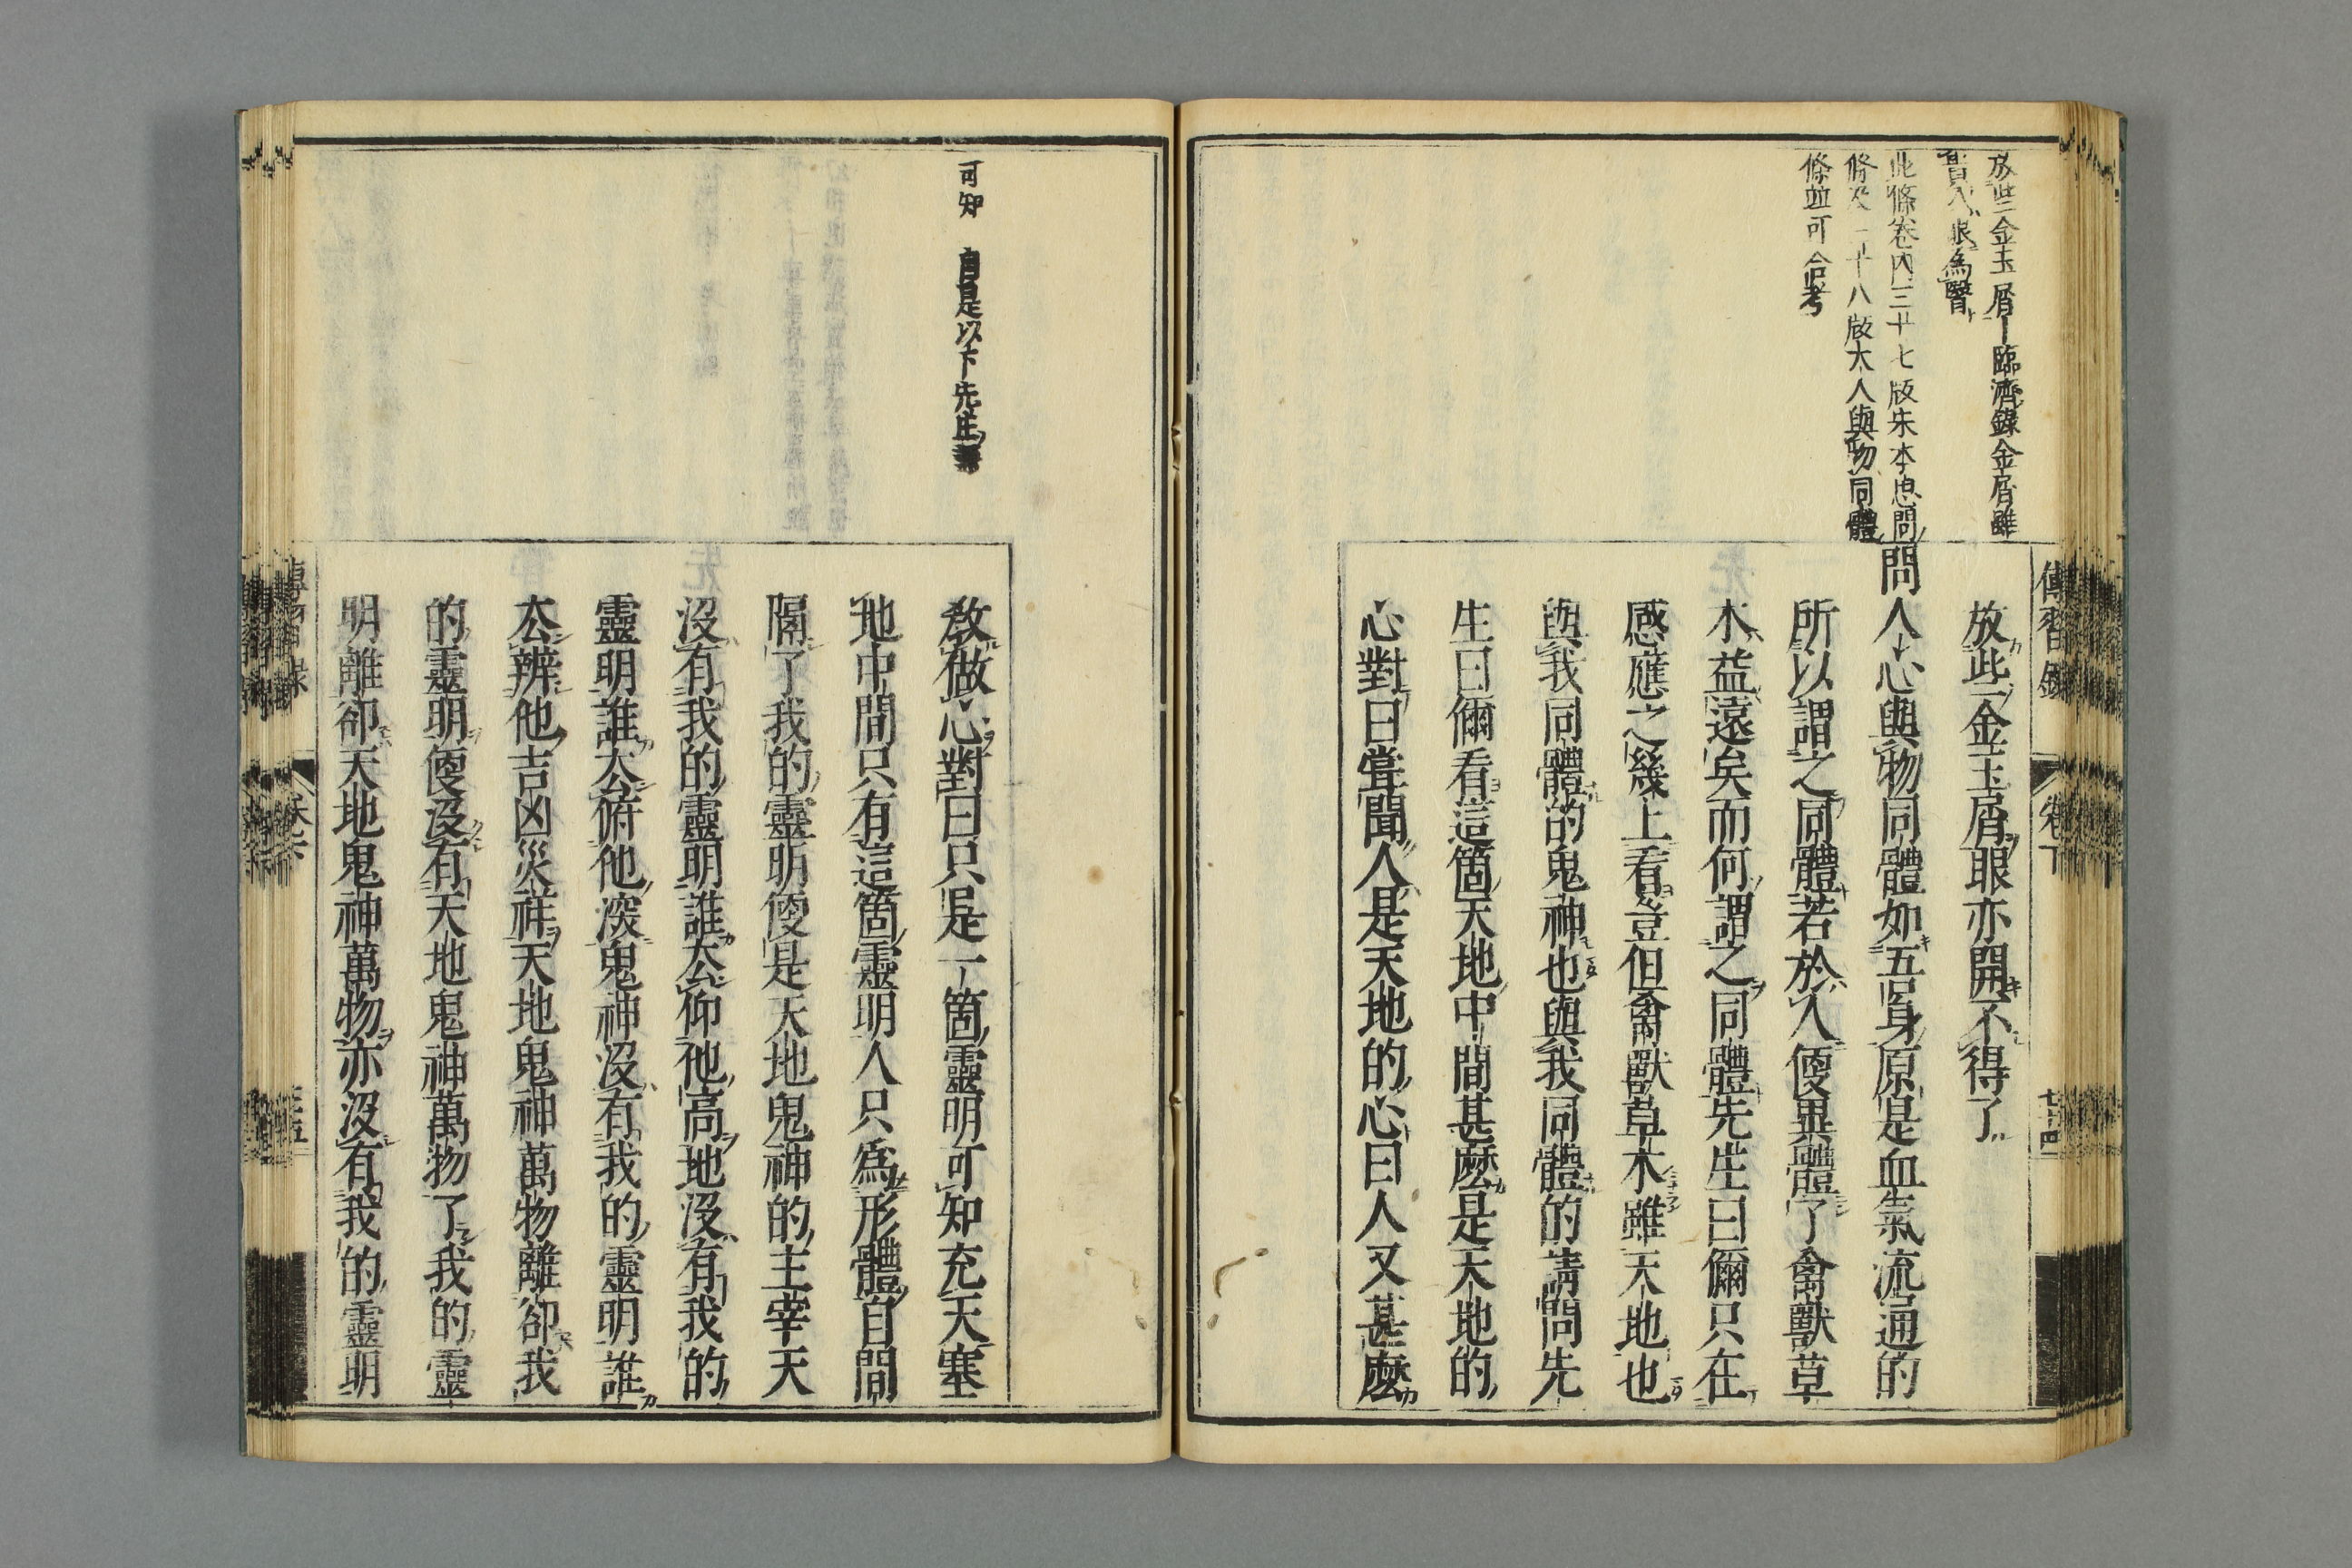 傳習錄
卷下
七十四
放些金玉屑｜臨濟錄金屑雖
貴入眼為翳
此條卷內三十七版朱本思問
條及一十八版大人與物同體
條並可合考
放些金玉屑眼亦開不得了
問人心與物同體如吾身原是血氣流通的
所以謂之同體若於人便異體了禽獸草
木益遠矣而何謂之同體先生曰爾只在
感應之幾上看豈但禽獸草木雖天地也
與我同體的鬼神也與我同體的請問先
生曰爾看這箇天地中間甚麼是天地的
心對曰嘗聞人是天地的心曰人又甚麼
可知　自是以下先生
教做心對曰只是一箇靈明可知充天塞
地中間只有這箇靈明人只為形體自間
隔了我的靈明便是天地鬼神的主宰天
沒有我的靈明誰去仰他高地沒有我的
靈明誰去俯他深鬼神沒有我的靈明誰
去辨他吉凶災祥天地鬼神萬物離卻我
的靈明便沒有天地鬼神萬物了我的靈
明離卻天地鬼神萬物亦沒有我的靈明